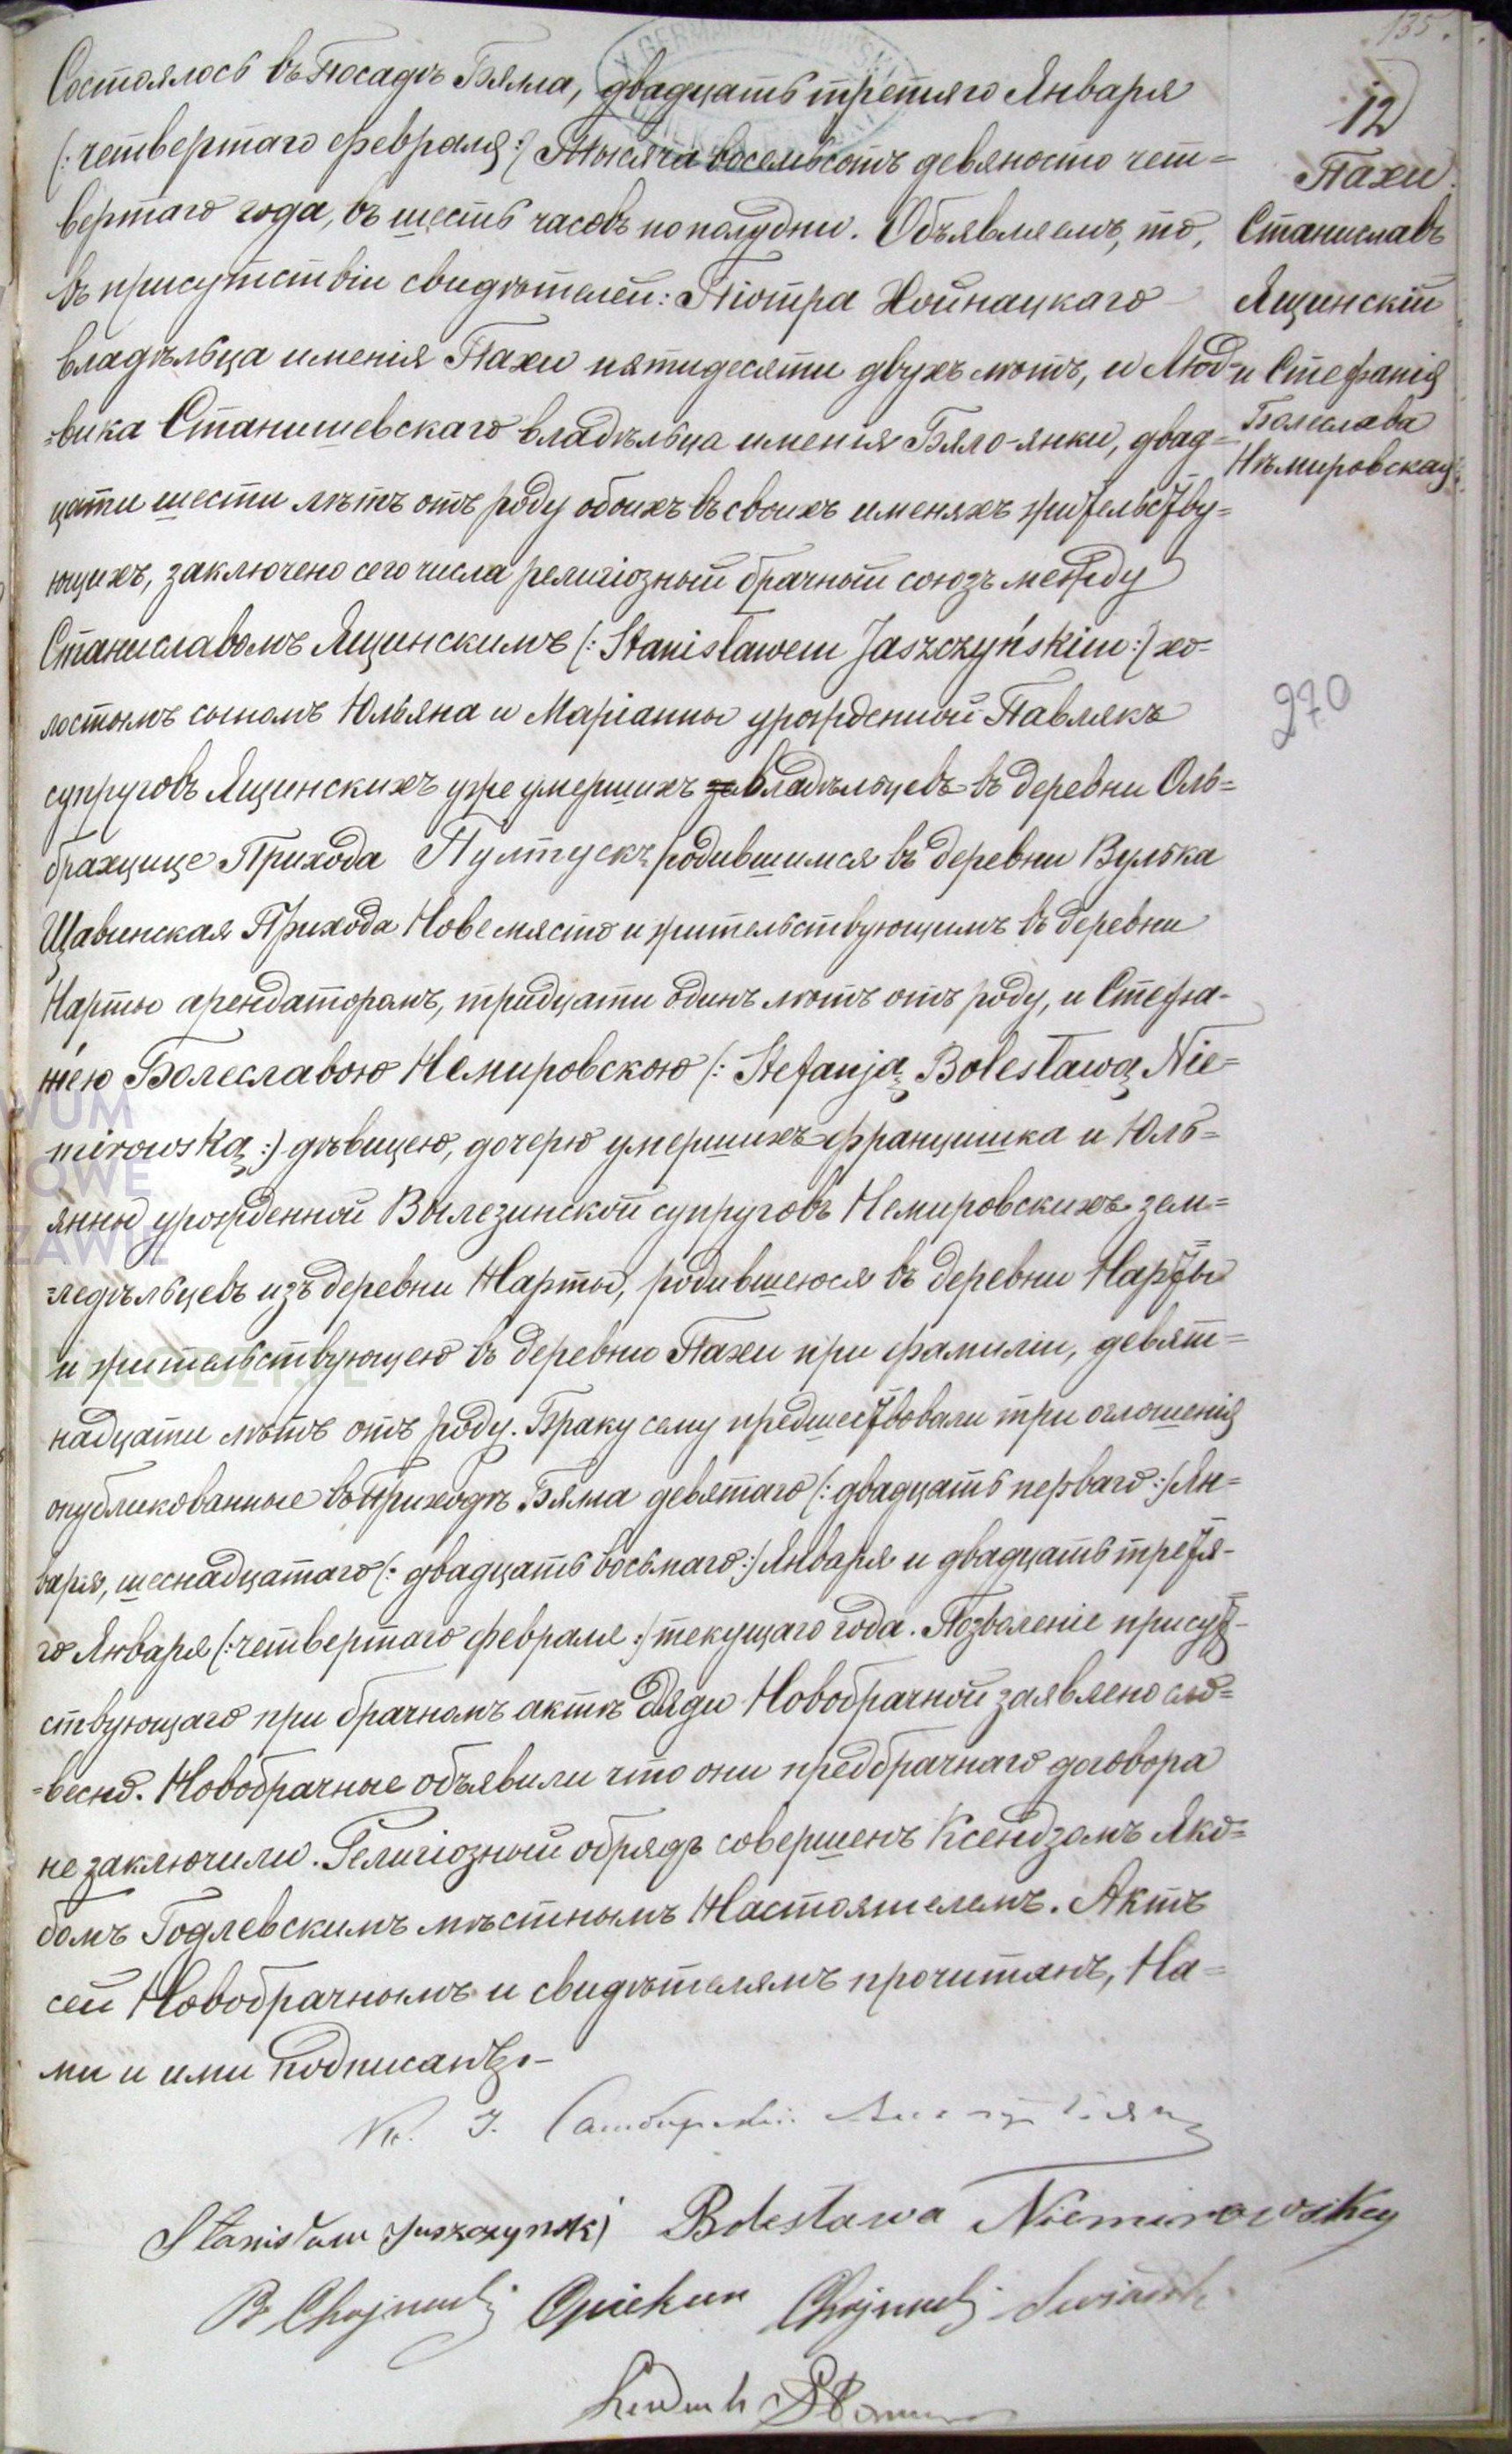 135.
12
Пахи
Станиславъ
Ящинскій
и Стефанія
Болеслава
Нѣмировская
270
Состоялось въ Посадѣ Бяла, двадцать третьяго Января
(: четвертаго февраля :) Тысяча восемьсотъ девяносто чет=
вертаго года, въ шесть часовъ по полудни. Объявляемъ, то,
въ присутствіи свидѣтелей: Піотра Хойнацкаго
владѣльца именія Пахи пятидесяти двухъ лѣтъ, и Люд=
=вика Станишевскаго владѣльца именія Бяло-янки, двад=
цати шести лѣтъ отъ роду обоихъ въ своихъ именяхъ жительству=
ющихъ, заключено сего числа религіозный брачный союзъ между
Станиславомъ Ящинскимъ (: Stanisławem Jaszczyńskim :) хо=
лостымъ сыномъ Юльяна и Маріанны урожденной Павлякъ
супруговъ Ящинскихъ уже умершихъ владѣльцевъ въ деревни Оль=
брахцице Прихода Пултускъ родившимся въ деревни Вулька
Щавинская Прихода Новемясто и жительствующимъ въ деревни
Нарты арендаторомъ, тридцати одинъ лѣтъ отъ роду, и Стефа-
ніею Болеславою Немировскою (: Stefanją Bolesławą Nie=
mirowską :) дѣвицею, дочерю умершихъ Францишка и Юль=
янны урожденной Вылезинской супруговъ Немировскихъ зем=
=ледѣльцевъ изъ деревни Нарты, родившеюся въ деревни Нарты
и жительствующею въ деревни Пахи при фамиліи, девят=
надцати лѣтъ отъ роду. Браку сему предшествовали три оглошенія
опубликованные въ Приходѣ Бяла девятаго (: двадцать перваго :) Ян=
варя, шеснадцатаго (: двадцать восьмаго :) Января и двадцать третья-
го Января (: четвертаго февраля :) текущаго года. Позволеніе присут-
ствующаго при брачномъ актѣ дяди Новобрачной заявлено сло=
=весно. Новобрачные объявили что они предбрачнаго договора
не заключили. Религіозный обрядъ совершенъ Ксендзомъ Яко=
бомъ Годлевскимъ мѣстнымъ Настоятелемъ. Актъ
сей Новобрачнымъ и свидѣтелямъ прочитанъ, На=
ми и ими подписанъ.-
Stanisław Jaszczynski Bolesława Niemirowska
P Chojnacki Opiekun Chojnacki Swiadek
Ludwik